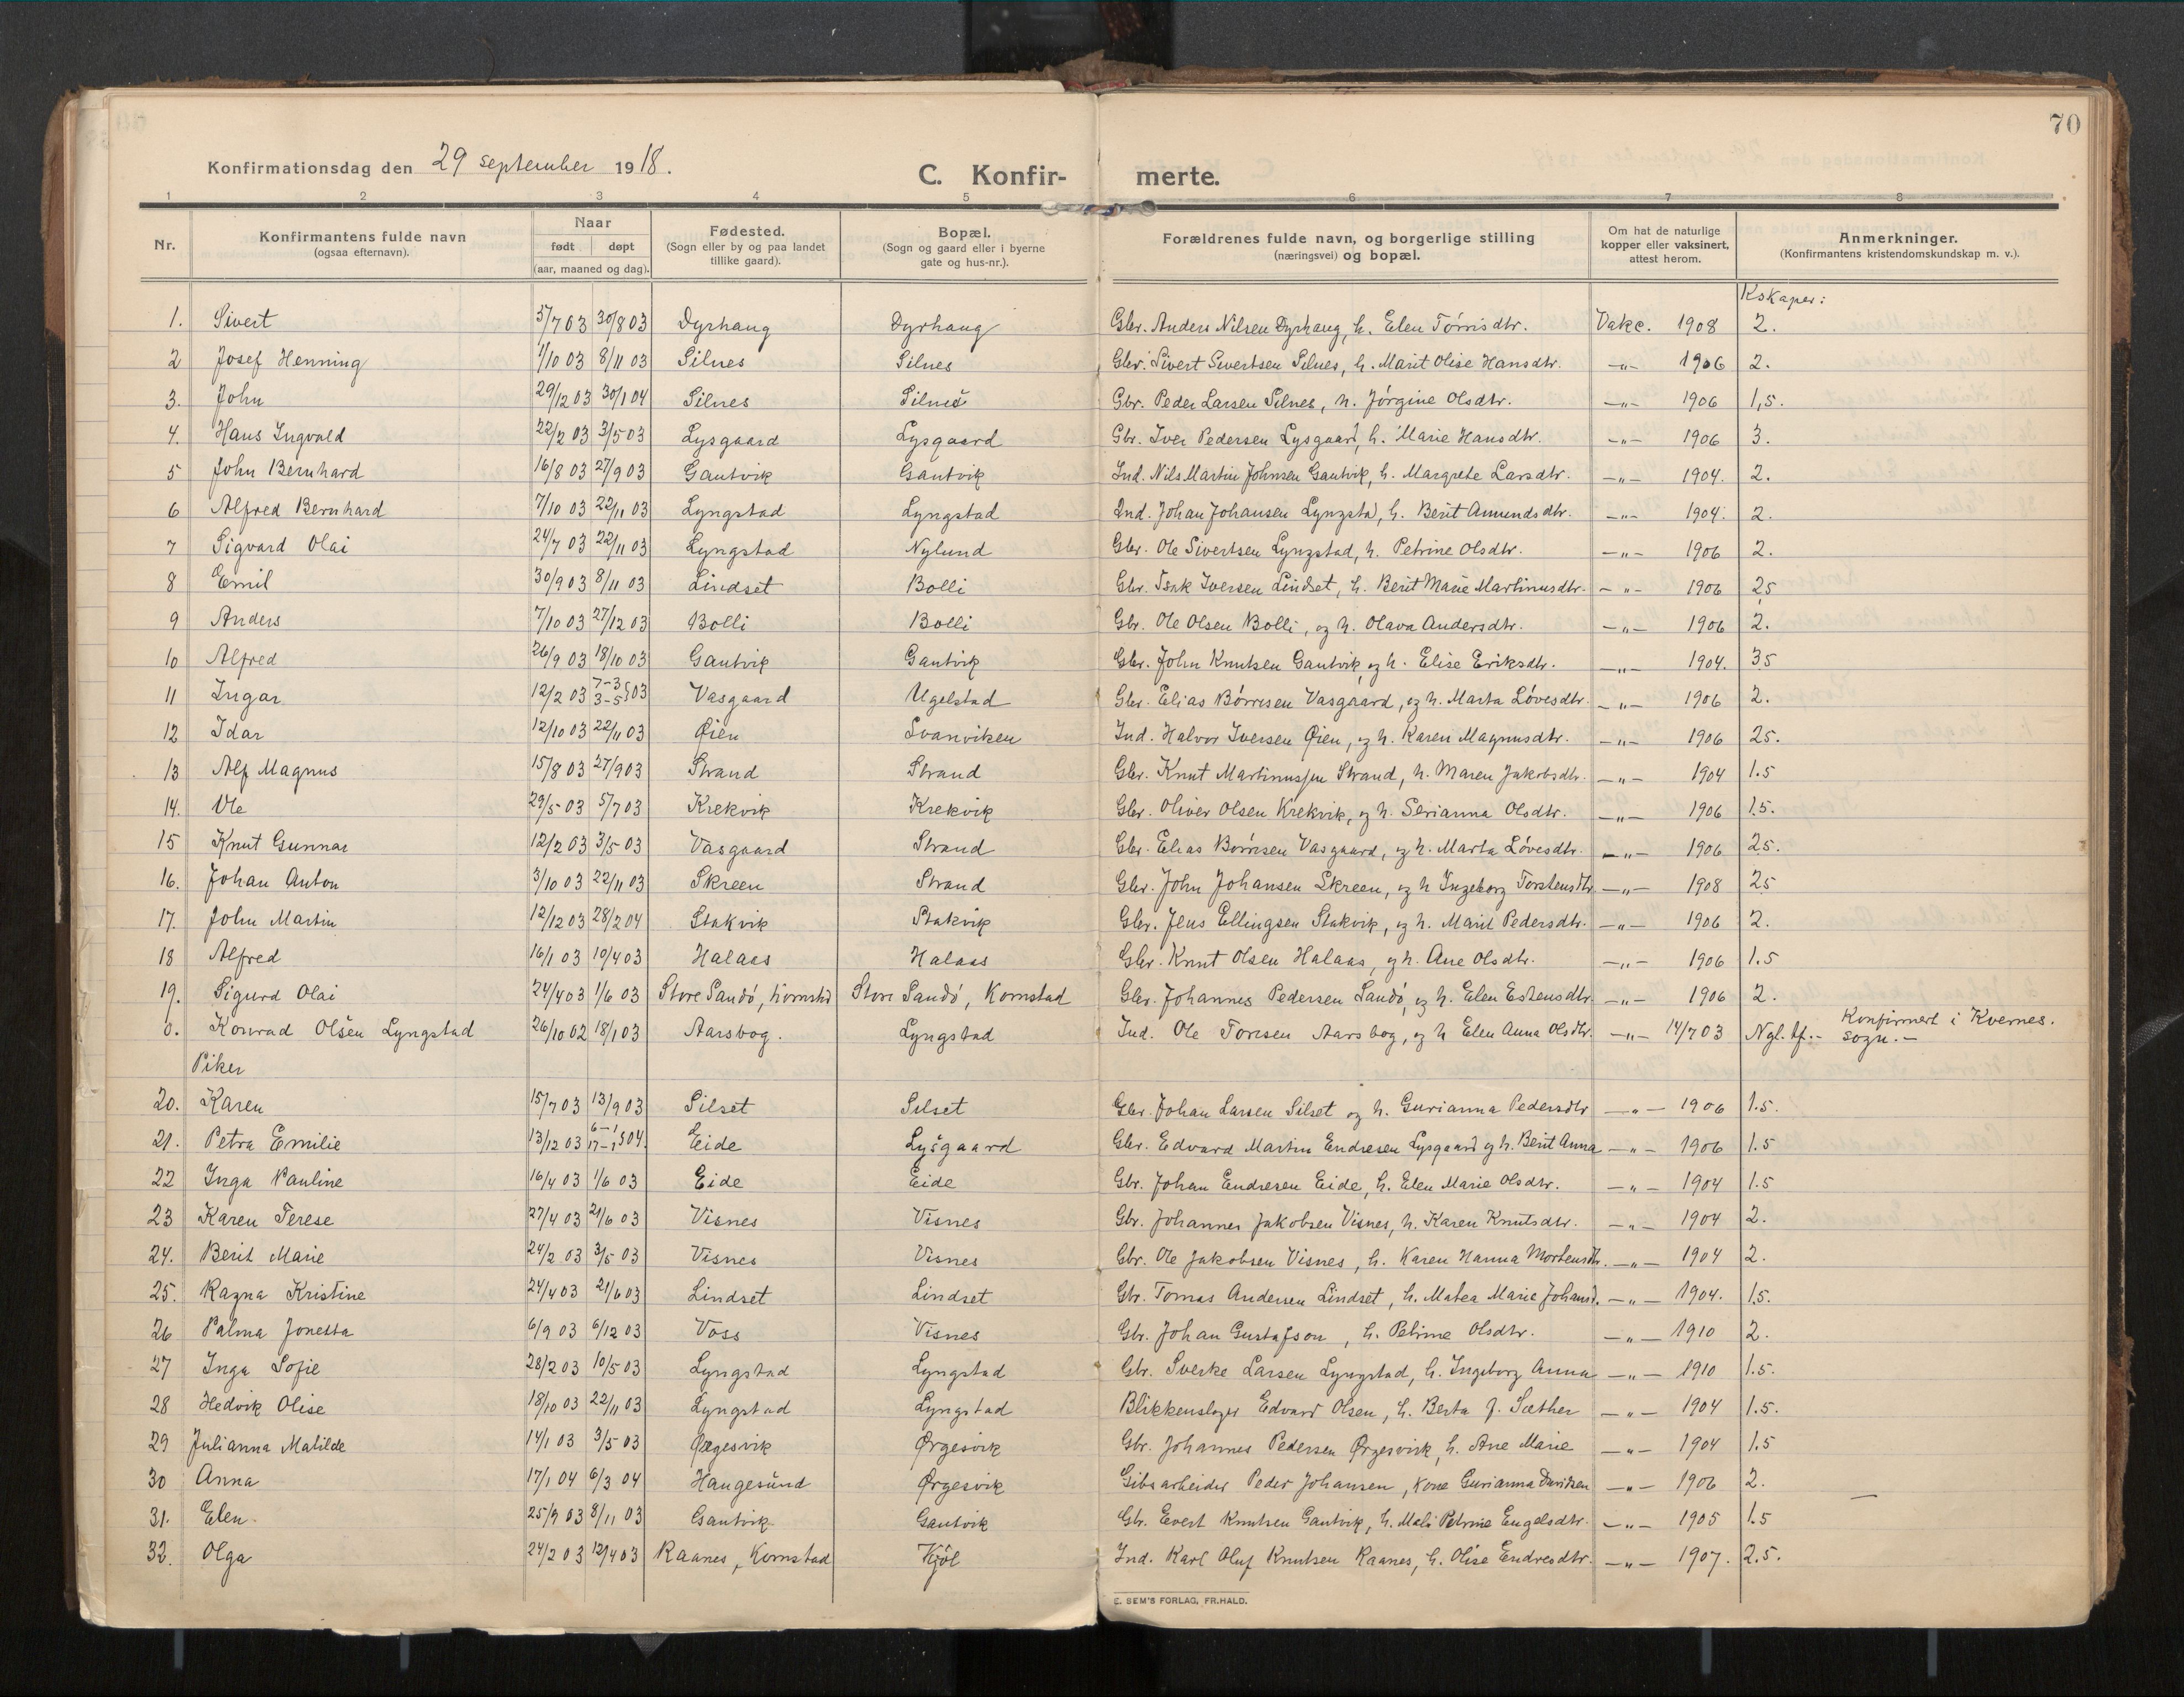 70
Konfirmationsdag den 29 september 1918.
C. Konfir- merte.
1 2 3 4 5 6 7 8
Nr. | Konfirmantens fulde navn (ogsaa efternavn). | Naar født døpt (aar, maaned og dag). | Fødested. (Sogn eller by og paa landet tillike gaard). | Bopæl. (Sogn og gaard eller i byerne gate og hus-nr.). | Forældrenes fulde navn, og borgerlige stilling (næringsvei) og bopæl. | Om hat de naturlige kopper eller vaksinert, attest herom. | Anmerkninger. (Konfirmantens kristendomskundskap m. v.).
Kskaper:
1. Sivert 5/7 03 30/8 03 Dyrhaug Dyrhaug Gbr. Anders Nilsen Dyrhaug, h. Elen Tørrisdtr. Vakc. 1908 2.
2 Josef Henning 1/10 03 8/11 03 Silnes Silnes Gbr. Sivert Sivertsen Silnes, h. Marit Olise Hansdtr. —„— 1906 2.
3. John 29/12 03 30/1 04 Silnes Silnes Gbr. Peder Larsen Silnes, h. Jørgine Olsdtr. —„— 1906 1,5.
4. Hans Ingvald 22/2 03 3/5 03 Lysgaard Lysgaard Gbr. Iver Pedersen Lysgaard, h. Marie Hansdtr. —„— 1906 3.
5 John Bernhard 16/8 03 27/9 03 Gautvik Gautvik Ind. Nils Martin Johnsen Gautvik, h. Margrete Larsdtr. —„— 1904. 2.
6 Alfred Bernhard 7/10 03 22/11 03 Lyngstad Lyngstad Ind. Johan Johansen Lyngsta, h. Berit Amundsdtr. —„— 1904. 2.
7 Sigvard Olai 24/7 03 22/11 03 Lyngstad Nylund Gbr. Ole Sivertsen Lyngstad, h. Petrine Olsdtr. —„— 1906 2.
8 Emil 30/9 03 8/11 03 Lindset Bolli Gbr. Isak Iversen Lindset, h. Berit Marie Martinusdtr. —„— 1906 2,5
9 Anders 7/10 03 27/12 03 Bolli Bolli Gbr. Ole Olsen Bolli, og h. Olava Andersdtr. —„— 1906 2.
10 Alfred 26/9 03 18/10 03 Gautvik Gautvik Gbr. John Knutsen Gautvik, og h. Elise Eriksdtr. —„— 1904. 3,5
11 Ingar 12/2 03 7-3 3-5 } 03 Vasgaard Ugelstad Gbr. Elias Børresen Vasgaard, og h. Marta Løvesdtr. —„— 1906 2.
12 Idar 12/10 03 22/11 03 Øien Svanviken Ind. Halvor Iversen Øien, og h. Karen Magnusdtr. —„— 1906 2,5.
13 Alf Magnus 15/8 03 27/9 03 Strand Strand Gbr. Knut Martinussen Strand, h. Maren Jakobsdtr. —„— 1904 1.5
14. Ole 29/5 03 5/7 03 Krekvik Krekvik Gbr. Oliver Olsen Krekvik, og h. Serianna Olsdtr. —„— 1906 1.5.
15 Knut Gunnar 12/2 03 3/5 03 Vasgaard Strand Gbr. Elias Børresen Vasgaard, og h. Marta Løvesdtr. —„— 1906 2.5.
16. Johan Anton 3/10 03 22/11 03 Skreen Strand Gbr. John Johansen Skreen, og h Ingeborg Torstensdtr —„— 1908 2.5
17. John Martin 12/12 03 28/2 04 Stakvik Stakvik Gbr. Jens Ellingsen Stakvik, og h. Marit Pedersdtr. —„— 1906 2.
18 Alfred 16/1 03 10/4 03 Halaas Halaas Gbr. Knut Olsen Halaas, og h. Ane Olsdtr. —„— 1906 1.5
19. Sigurd Olai 24/4 03 1/6 03 Store Sandø, Kornstd Store Sandø, Kornstad Gbr. Johannes Pedersen Sandø, og h. Elen Estensdtr —„— 1906 2.
0. Konrad Olsen Lyngstad 26/10 02 18/1 03 Aarsbog. Lyngstad Ind. Ole Toresen Aarsbog, og h Elen Anna Olsdtr. —„— 14/7 03 Ngl. tf. - Konfirmert i Kvernes. sogn. —
Piker
20. Karen 15/7 03 13/9 03 Silset Silset Gbr. Johan Larsen Silset og h. Gurianna Pedersdtr —„— 1906 1.5.
21. Petra Emilie 13/12 03 6-1 17-1 } 04. Eide Lysgaard Gbr. Edvard Martin Endresen Lysgaard og h. Berit Anna —„— 1906 1.5
22 Inga Pauline 16/4 03 1/6 03 Eide Eide Gbr. Johan Endresen Eide, h. Elen Marie Olsdtr. —„— 1904 1.5
23 Karen Terese 27/4 03 21/6 03 Visnes Visnes Gbr. Johannes Jakobsen Visnes, h. Karen Knutsdtr. —„— 1904 2.
24. Berit Marie 24/2 03 3/5 03 Visnes Visnes Gbr. Ole Jakobsen Visnes, h. Karen Hanna Mortensdtr. —„— 1904 2.
25. Ragna Kristine 24/4 03 21/6 03 Lindset Lindset Gbr. Tomas Andersen Lindset, h. Matea Marie Johansd. —„— 1904. 1.5.
26 Palma Jonetta 6/9 03 6/12 03 Voss Visnes Gbr. Johan Gustafson, h. Petrine Olsdtr. —„— 1910 2.
27 Inga Sofie 28/2 03 10/5 03 Lyngstad Lyngstad Gbr. Sverke Larsen Lyngstad, h. Ingeborg Anna —„— 1910 1.5.
28 Hedvik Olise 18/10 03 22/11 03 Lyngstad Lyngstad Blikkenslager Edvard Olsen, h. Berta J. Sæther —„— 1904 1.5.
29 Julianna Matilde 14/1 03 3/5 03 Ørgesvik Ørgesvik Gbr. Johannes Pedersen Ørgesvik, h. Ane Marie —„— 1904 1.5
30 Anna 17/1 04 6/3 04 Haugesund Ørgesvik Gibsarbeider Peder Johansen, kone Gurianna Davidsen —„— 1906 2. —
31. Elen 25/9 03 8/11 03 Gautvik Gautvik Gbr. Evert Knutsen Gautvik, h. Mali Petrine Engelsdtr. —„— 1905 1.5
32. Olga 24/2 03 12/4 03 Raanes, Kornstad Kjøl Ind. Karl Oluf Knutsen Raanes, h. Olise Endresdtr. —„— 1907. 2.5.
E. SEM'S FORLAG, FR.HALD.